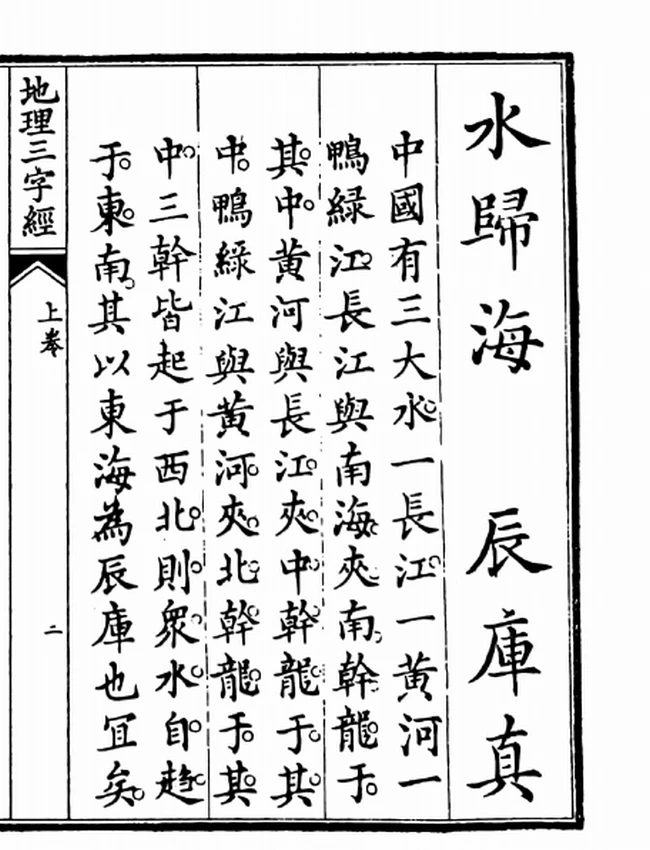 水歸海　辰庫真
中國有三大水。一長江。一黃河一
鴨綠江。長江與南海夾南幹龍于。
其。中。黃河與長江。夾中幹龍于其
中。鴨綠江與黃河夾北幹龍于其
中。三幹皆起于西北。則眾水自趨
于東南。其以東海為辰庫也冝矣。
地理三字經
上卷
二